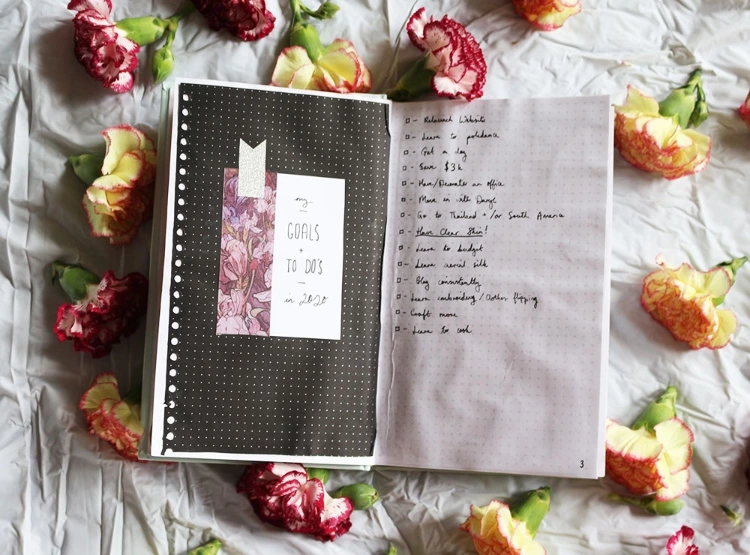 my
GOALS
+
TO DO'S
in 2020
- Relaunch Website
- Learn to poledance
- Get a dog
- Save $3k
- Have/Decorate an office
- Move in with
- Go to Thailand +/or South America
- Have Clear Skin!
- Learn to budget
- Learn aerial silk
- Blog consistently
- Learn embroidery/Clothes flipping
- Craft more
- Learn to cook
3